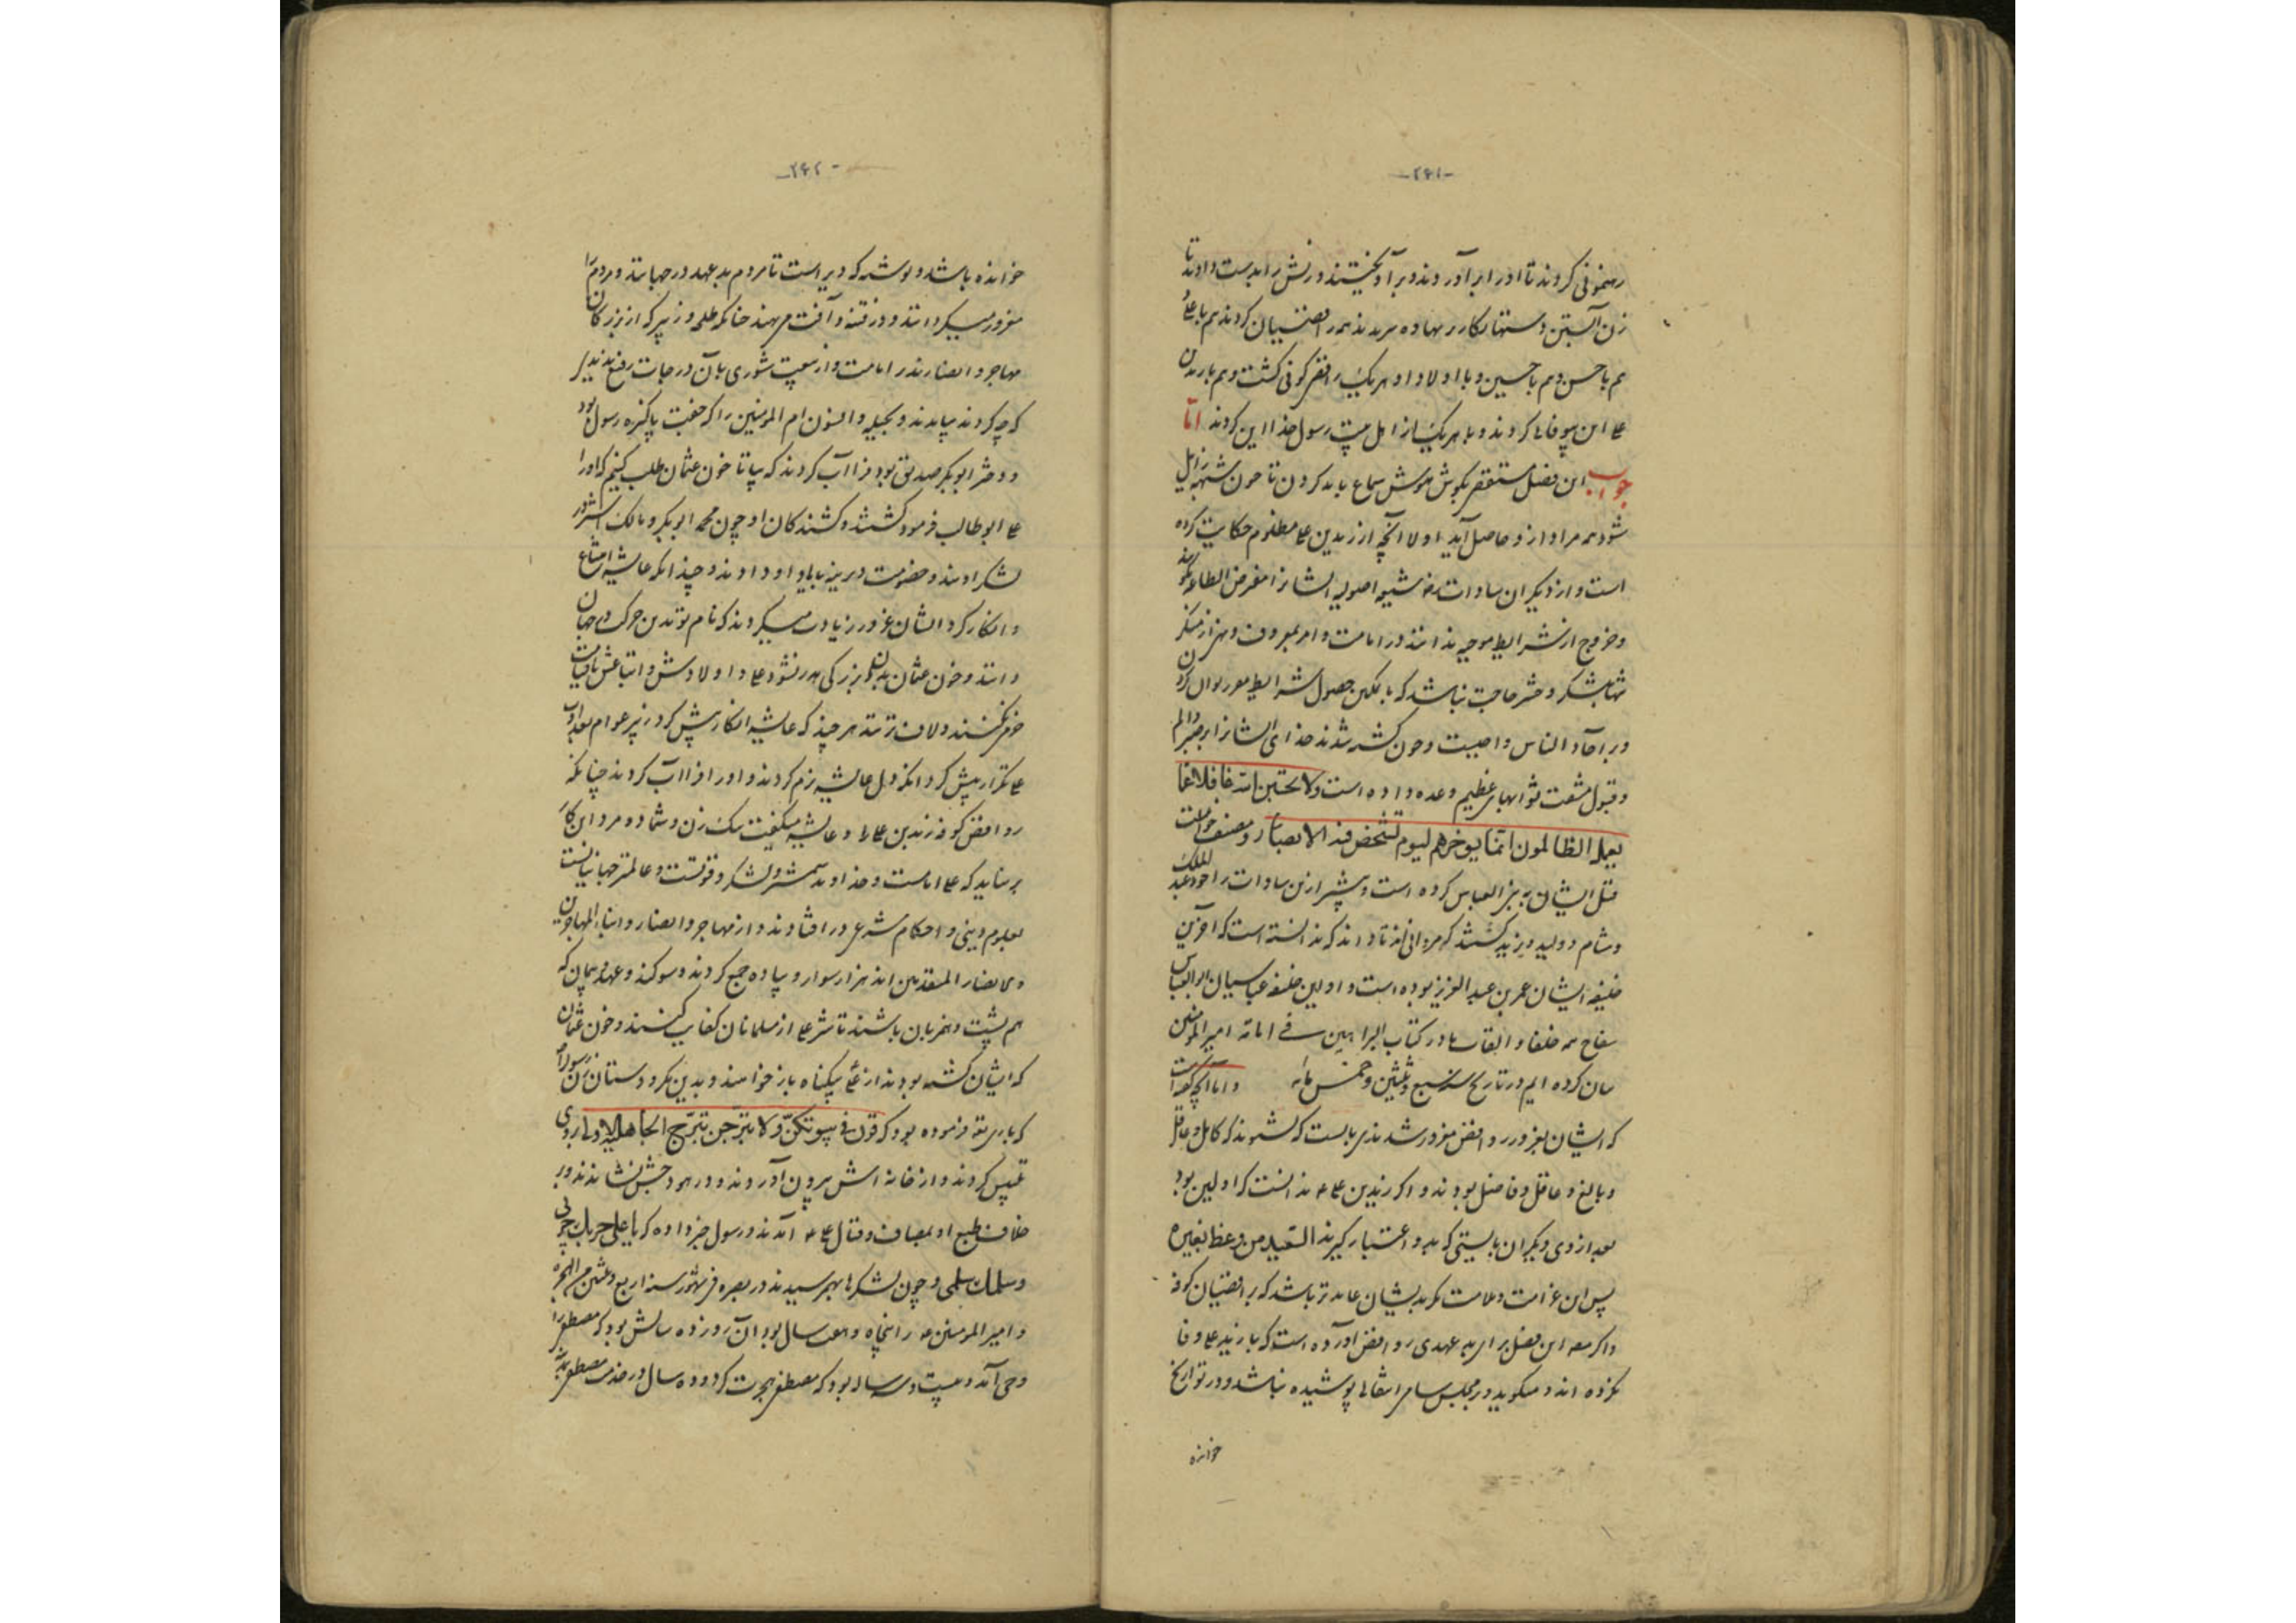 -۲۴۱-
رهنمونی کردند تا او را برآوردند و برآویختند و زنش را بدست دادند تا
زن آبستن دستها بکار بر نهاده همه رافضیان کردند هم با علی
هم با حسن و هم با حسین و با اولاد او هر یک رافضی کوفی کشت و هم با زید بن
علی این بیوفائی کردند و با هر یک از اهل بیت رسول خدا این کردند اما
جواب این فصل مستقصر بکوش هوش سماع باید کردن تا چون شبهه زایل
شود همه مراد از او حاصل آید اولا آنچه از زید بن علی مظلوم حکایت کرده
است و از دیگران سادات شیعه اصولیه ایشانرا مفترض الطاعه نکویند
و خروج از شرایط موجبه ندانند در امامت و امر بمعروف و نهی از منکر
بلشکر و حشر حاجت نباشد که با تمکین حصول شرایط
بر آحاد الناس واجبست و چون کشته شدند خدای ایشانرا بر صبر
و قبول مشقت ثوابهای عظیم وعده داده است ولا تحسبن الله غافلا عما
یعمل الظالمون انما یؤخرهم لیوم تشخص فیه الابصار و مصنف
قتل ایشان بر بنی العباس کرده است و بیشتر از این سادات را خود عبد الملک
و هشام و ولید و یزید کشتند که مروانی اند تا داند که ندانسته است که آخرین
خلیفه ایشان عمر بن عبد العزیز بوده است و اولین خلیفه عباسیان ابو العباس
سفاح همه خلفا و القاب ما در کتاب البراهین فی امامة امیر المؤمنین
بیان کرده ایم در تاریخ سنه سبع و ثلثین و خمس مائه و اما آنچه گفته است
که ایشان بغرور روافض مغرور شدند بایست که نشدند که کامل و عاقل
و بالغ و عاقل و فاضل بودند و اگر زید بن علی ندانست که اولین بود
بعد از وی دیگران بایستی که بدو اعتبار گیرند السعید من وعظ بغیره
پس این غرامت و ملامت هم بدیشان عاید تر باشد که برافضیان کوفه
و اگر این فصل برای بد عهدی روافض آورده است که با زید علی وفا
نکرده اند و میگوید در مجلس پوشیده نباشد و در تواریخ
خوانده
-۲۴۲-
خوانده باشد و نوشته که دیر است تا مردم بد عهد در جهانند و مردم را
مغرور میگردانند و در فتنه و آفت می نهند چنانکه طلحه و زبیر که از بزرگان
مهاجر و انصارند در امامت و از بیعت شوری بآن درجات رفیع
که چه کردند بیامدند و بحیله و افسون ام المؤمنین را که جفت پاکیزه رسول بود
و دختر ابوبکر صدیق بود فرا آب کردند که بیا تا خون عثمان طلب کنیم که او را
علی ابو طالب فرمود کشتند و کشندگان او چون محمد ابوبکر و مالک اشتر در
لشکر اویند و خصومت دیرینه با یاد او دادند و چندانکه عایشه امتناع
و انکار کرد ایشان غرور زیادت میکردند که نام تو بدین حرکت در جهان
دانند و خون عثمان بدان بزرگی هدر نشود علی و اولادش و اتباعش تا قیامت
فخر نکنند و لاف نزنند هر چند که عایشه انکار بیش کرد زبیر عوام
علی تکرار بیش کرد آنگه دل عایشه نرم کردند و او را فرا آب کردند چنانکه
روافض کوفه زید بن علی را و عایشه میگفت یک زن و شما دو مرد این کار
بر نیاید که علی امامست و خداوند شمشیر و لشکر و قوتست و عالمتر جهانیانست
بعلوم دینی و احکام شرعی در افتادند و از مهاجر و انصار و ابناء المهاجرین
و الانصار المتقدمین اند هزار سوار و پیاده جمع کردند و سوگند و عهد و پیمان که
هم پشت و همزبان باشند تا شر علی از مسلمانان کفایت کنند و خون عثمان
که ایشان کشته بودند از علی بیگناه باز خواهند و بدین مکر و دستان زن رسول را
که باری تعالی فرموده بود که قرن فی بیوتکن ولا تبرجن تبرج الجاهلیة الاولی از روی
تلبیس کردند و از خانه اش بیرون آوردند و در هودجش نشاندند و بر
خلاف طبع او بمصاف و قتال علی آمدند و رسول خبر داده که یا علی حربک حربی
و سلمک سلمی و چون لشکرها بهم رسیدند در بصره فی شهور سنة اربع و ثلثین من الهجرة
و امیر المؤمنین را پنجاه و هفت سال بود آن روز ده سالش بود که مصطفی را
وحی آمد و بیست و سه ساله بود که مصطفی هجرت کرد و ده سال در خدمت مصطفی